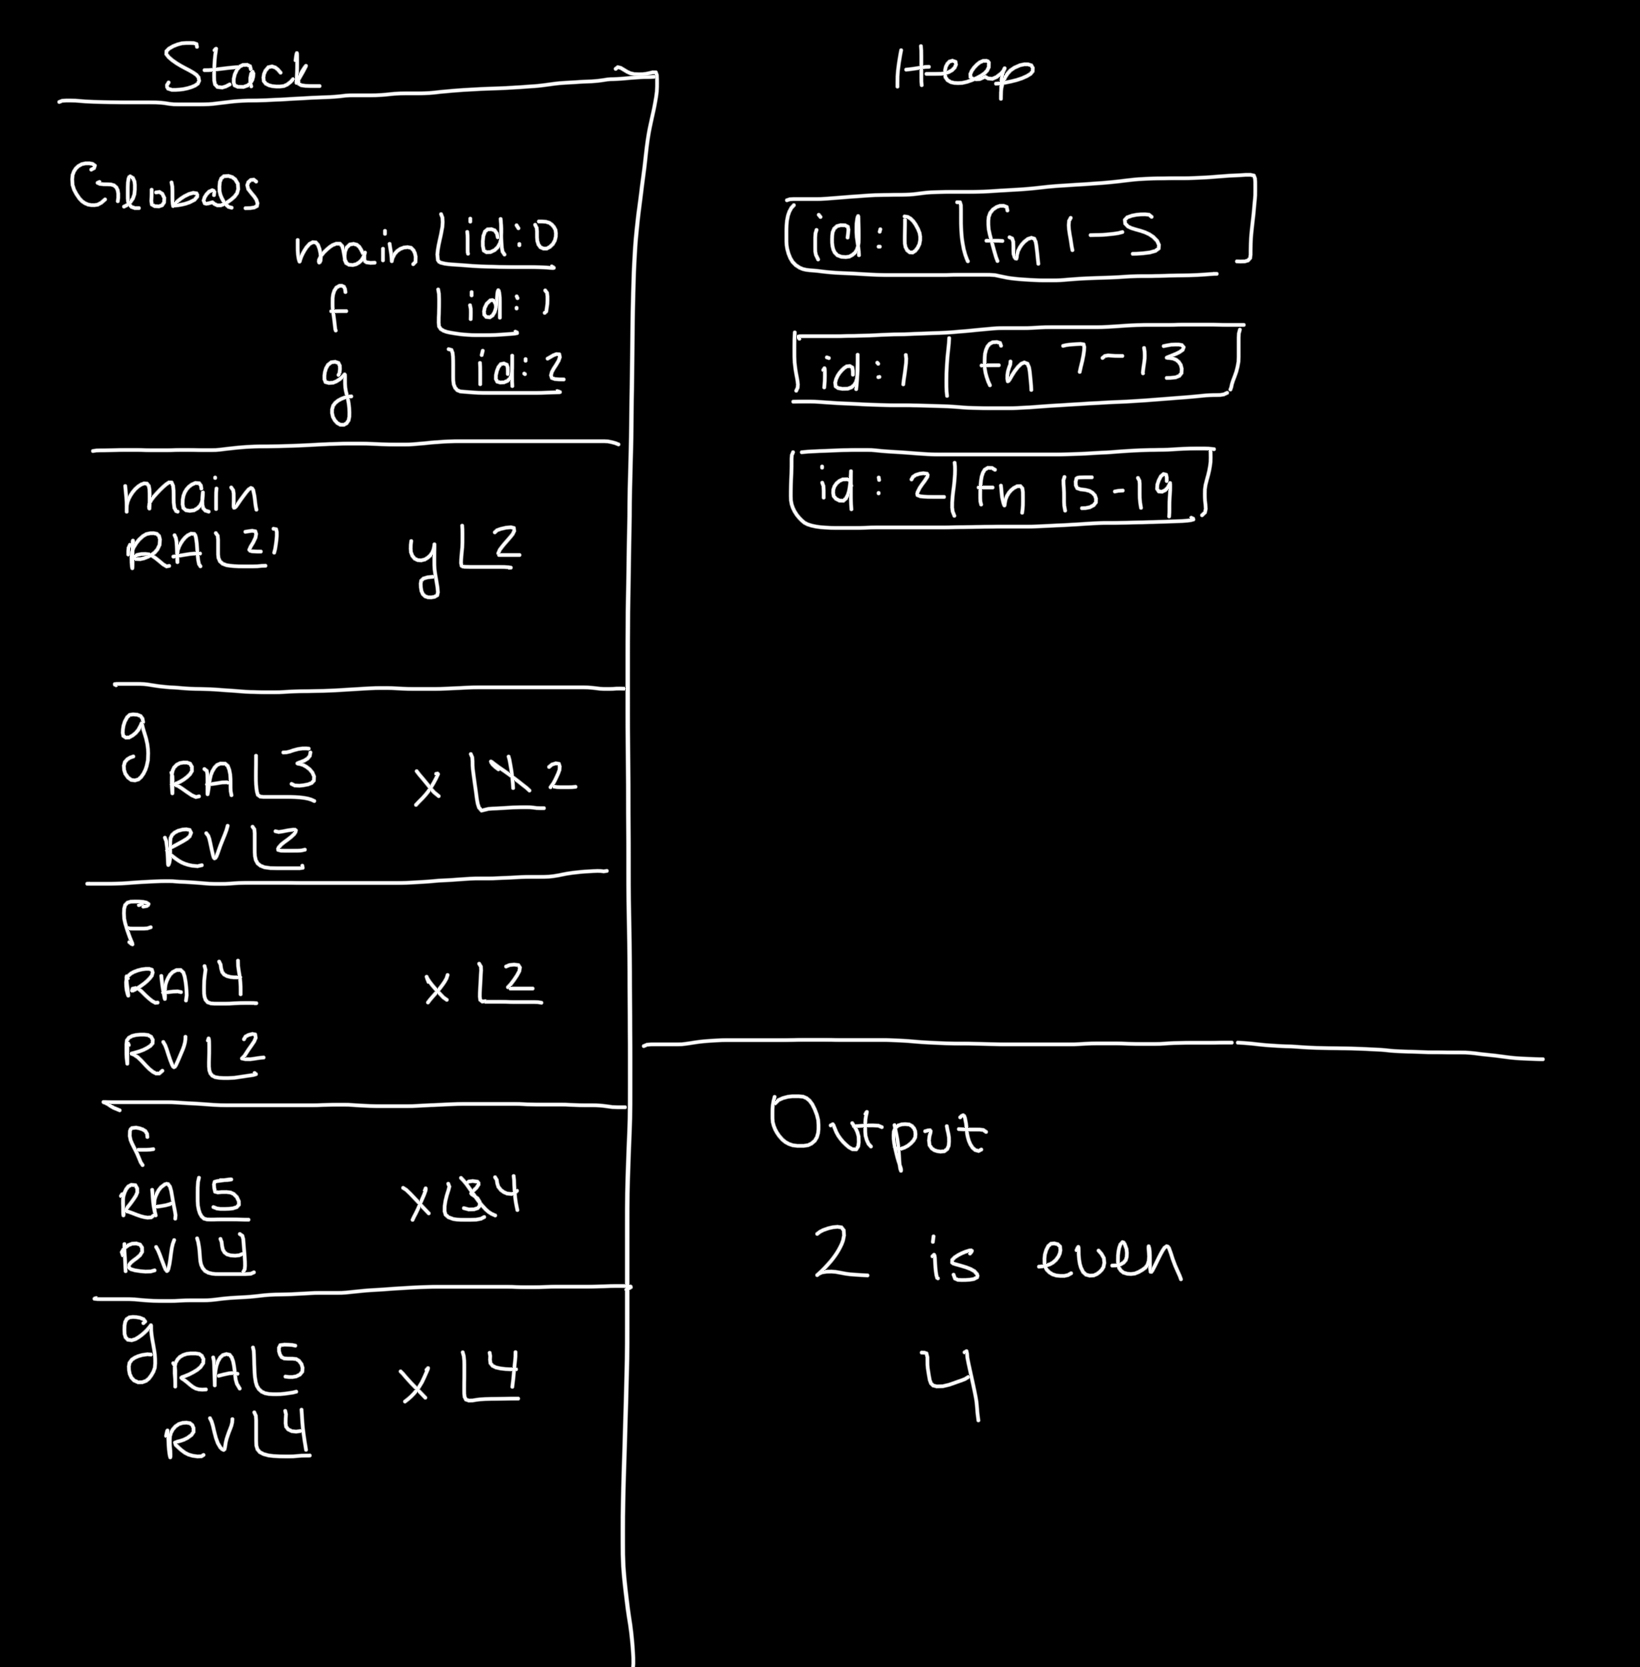 Stack
Globals
main id:0
f id:1
g id:2
main
RA 21 y 2
g
RA 3 x 1 2
RV 2
F
RA 4 x 2
RV 2
F
RA 5 x 3 4
RV 4
g
RA 5 x 4
RV 4
Heap
id:0 | fn 1-5
id:1 | fn 7-13
id: 2 | fn 15-19
Output
2 is even
4